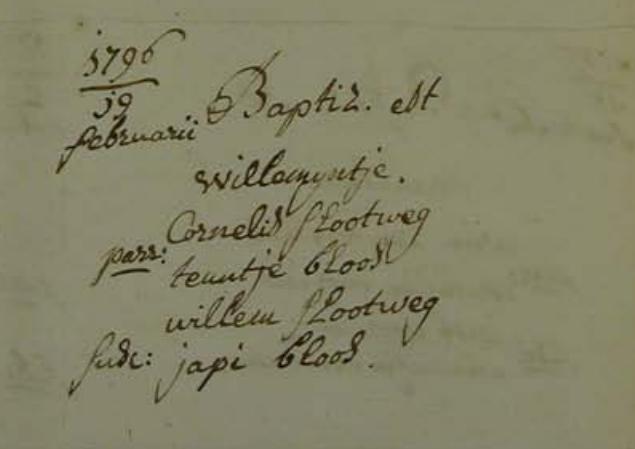 1796
19
februarii Baptiz. est
willemyntje.
parr: Cornelis slootweg
teuntje bloos
willem slootweg
susc: japi bloos.